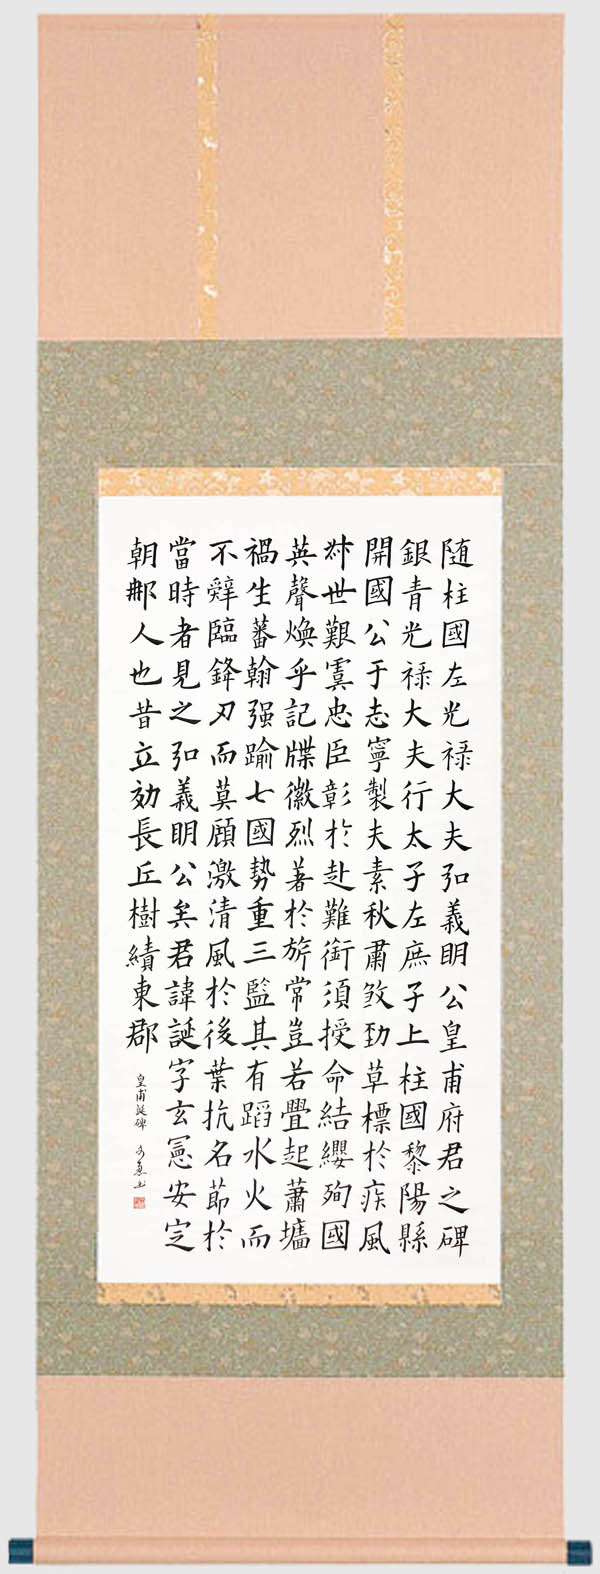 随柱國左光祿大夫弘義明公皇甫府君之碑
銀青光祿大夫行太子左庶子上柱國黎陽縣
開國公于志寧製夫素秋肅煞勁草標於疾風
叔世艱虞忠臣彰於赴難銜須授命結纓殉國
英聲煥乎記牒徽烈著於旂常豈若舋起蕭墻
禍生蕃翰强踰七國勢重三監其有蹈水火而
不辭臨鋒刃而莫顧激清風於後葉抗名節於
當時者見之弘義明公矣君諱誕字玄憲安定
朝那人也昔立効長丘樹績東郡
皇甫誕碑